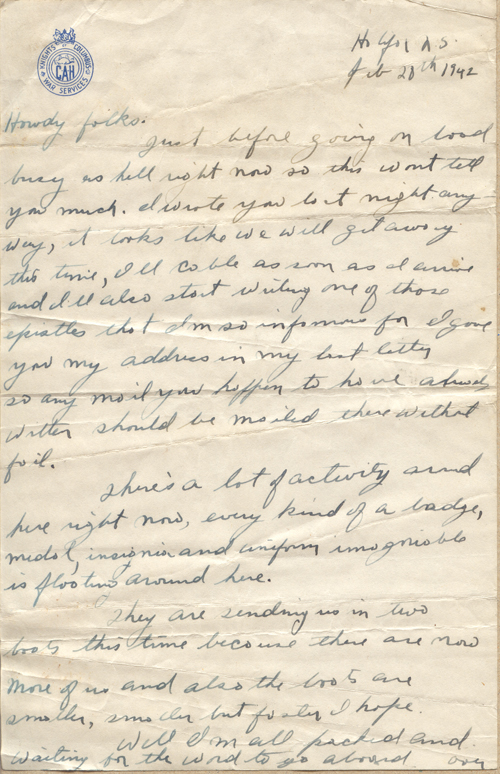 KNIGHTS OF COLUMBUS
CAH
WAR SERVICES
Halifax N.S.
Feb 28th 1942
Howdy folks.
Just before going on board
busy as hell right now so this wont tell
you much. I wrote you last night any
way, it looks like we will get away
this time, I'll cable as soon as I arrive
and I'll also start writing one of those
epistles that I'm so infamous for I gave
you my address in my last letter
so any mail you happen to have already
written should be mailed there without
fail.
There's a lot of activity around
here right now, every kind of a badge,
medal, insignia and uniform imaginable
is floating around here.
They are sending us in two
boats this time because there are now
more of us and also the boats are
smaller, smaller but faster I hope.
Well I'm all packed and
waiting for the word to go aboard. over